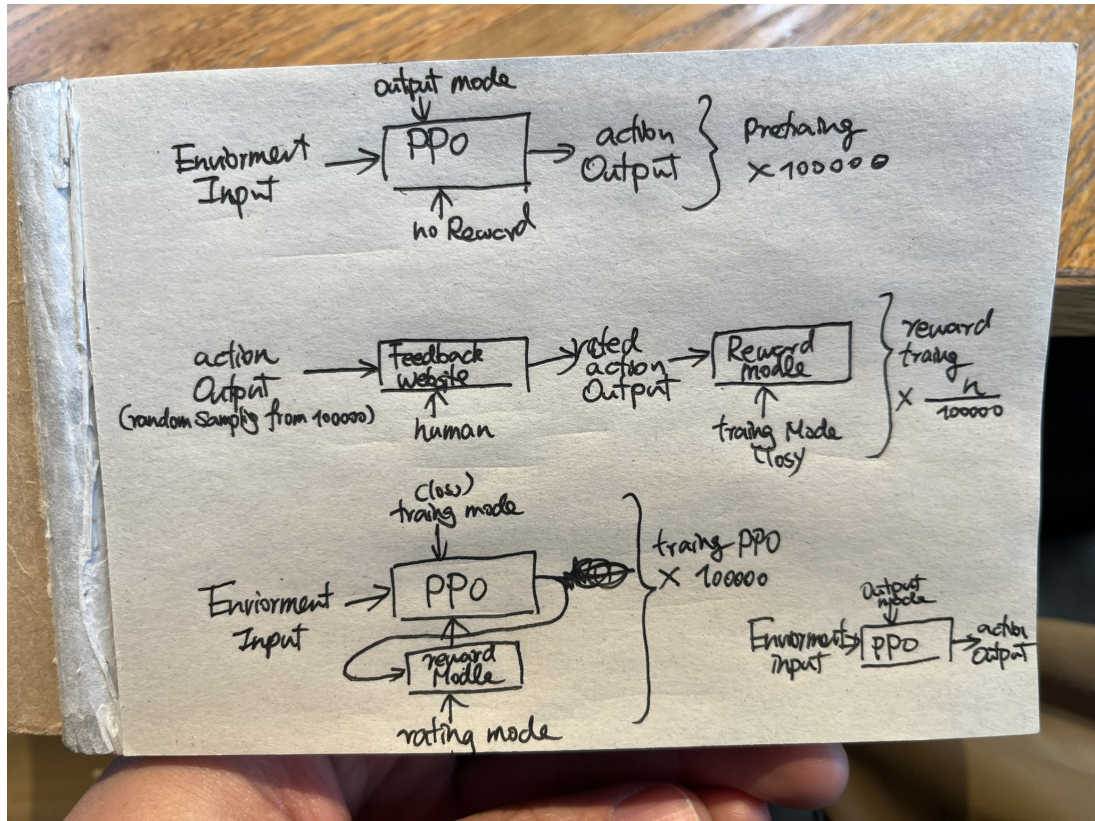 output mode
Enviorment
Input
PPO
no Reward
action
Output
Pretraing
× 100000
action
Output
(random Samplig from 100000)
Feedback
website
human
rated
action
Output
Reward
modle
traing Mode
reward
traing
× n
100000
(loss)
traing mode
Enviorment
Input
PPO
reward
Modle
rating mode
traing PPO
× 100000
Output
mode
Enviorment
input
PPO
action
Output